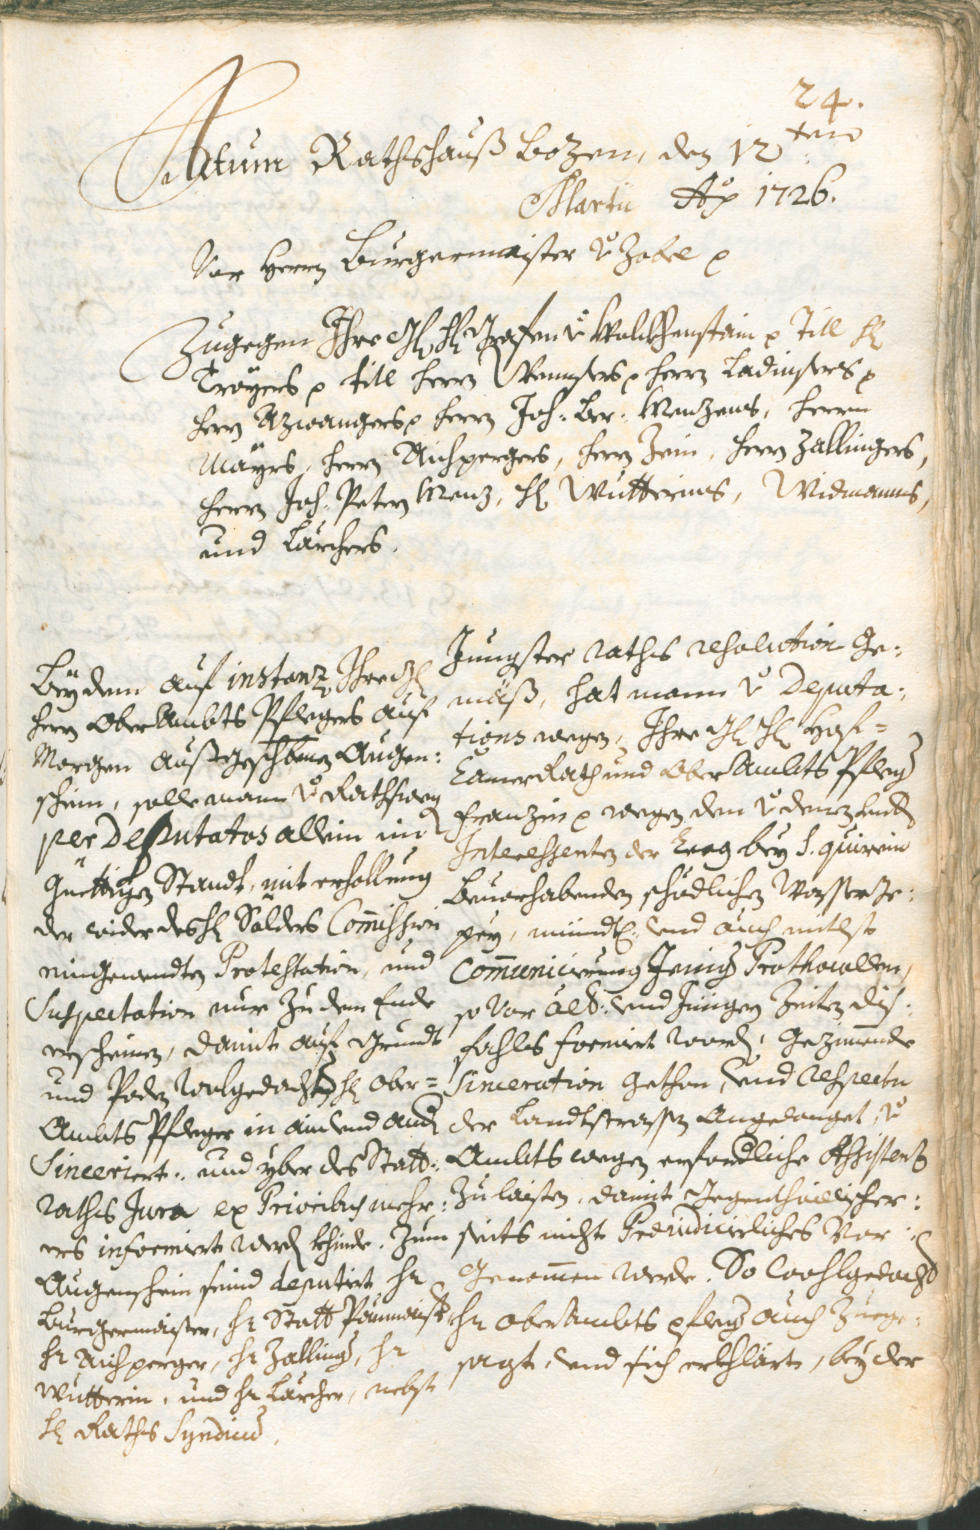 24.
Actum Rathshauß Bozen, den 12 ten
Martii Ao 1726.
Vor Herrn Burgermaister v Zobel
Zugegen Ihro Hl Grafen v Wolkhenstain Titl Hl
Troÿers titl Herrn Herrn Ladinsers
Herrn Azwangers Herrn Joh: Menzens, Herrn
Maÿrs, Herrn Aichpergers, Herrn Zallingers,
Herrn Joh: Peter Menz, Hl Wutterins, Widmanns,
und Larchers.
Beÿ dem auf instanz Ihro
Herrn OberAmbts Pflegers auf
Morgen außgeschribnen Augen:
schein, solle mann v Rathswegen
per Deputatos allein im
güettigen Standt, mit erhollung
der wider des Hl Sölders Commission
eingewendten Protestation, und
Suspectation nur zu dem Ende
erscheinen, damit auf Grundt
und Poden Wolgedachter Hl Ober=
Ambts Pfleger in ein und ander
Sinceriert: und yber des Statt:
raths Jura ex Prioribus mehr:
ers informiert werden khinde. Zum
Augenschein seind deputirt Hr
Burgermaister, Hr Statt Paumaister
Hr Aichperger, Hr Zallinger, Hr
Wutterin, und Hr Larcher, nebst
Hl Raths Syndicus,
Jungster raths resolution Ge:
mäß, hat mann v Deputa:
tions wegen, Ihro Hl Hof=
Camer Rath und Ober Ambts Pfleger
Franzin wegen dem v denen
Interessenten der beÿ S. quirein
bevorhabenden schädlichen Wasserge:
peÿ, mündtl: und auch mitlst
Communicierung Jenig Prothocollen,
so vor alt: und Jüngern Zeiten dis:
fahls formiert worden, Gezimende
Sinceration gethon, und respectu
der Landtstrassen Angelanget, v
Ambts wegen erforderliche Assistenz
zulaisten, damit Gegenthaillischer:
seits nichts Preiudicierliches vor:
Genommen werde. So Wohlgedacht
Hr Ober Ambts pfleger auch zuege:
sagt, und sich erkhlärt, beÿ der